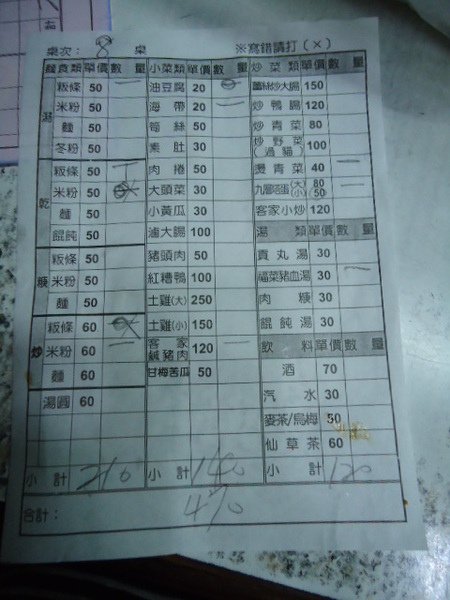 桌次： 8 桌 ※寫錯請打（×）
麵食類 單價 數量 小菜類 單價 數量 炒菜類 單價 數量
湯 粄條 50 一 油豆腐 20 炒大腸 150
米粉 50 海帶 20 一 炒鴨腸 120
麵 50 筍絲 50 炒青菜 80
冬粉 50 素肚 30 炒野菜（過貓） 100
乾 粄條 50 一 肉捲 50 燙青菜 40 一
米粉 50 大頭菜 30 九層塔蛋（大）80（小）50 一
麵 50 小黃瓜 30 客家小炒 120
餛飩 50 滷大腸 100 湯類 單價 數量
粄條 50 豬頭肉 50 貢丸湯 30
米粉 50 紅糟鴨 100 福菜豬血湯 30 一
麵 50 土雞（大） 250 肉糠 30
炒 粄條 60 土雞（小） 150 餛飩湯 30
米粉 60 一 客家鹹豬肉 120 一 飲料 單價 數量
麵 60 甘梅苦瓜 50 酒 70
湯圓 60 汽水 30
麥茶/烏梅 50
仙草茶 60
小計 210 小計 140 小計 120
合計： 470